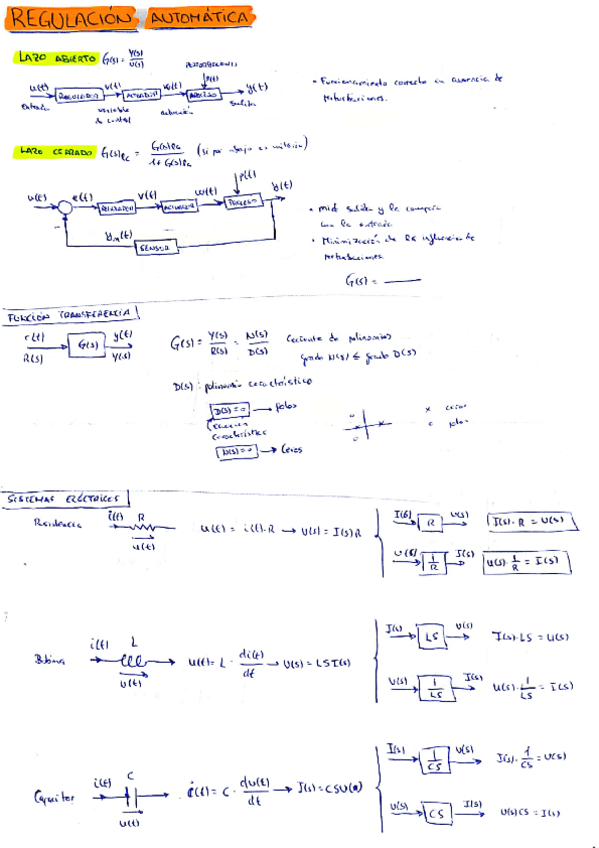 REGULACIÓN AUTOMÁTICA
LAZO ABIERTO G(s) = Y(s)/U(s)
PERTURBACIONES
p(t)
u(t) REGULADOR v(t) ACTUADOR w(t) PROCESO y(t)
entrada variable de control actuación salida
• Funcionamiento correcto en ausencia de
perturbaciones.
LAZO CERRADO G(s)BC = G(s)BA / 1+G(s)BA (si por abajo es unitaria)
p(t)
u(t) e(t) REGULADOR v(t) ACTUADOR w(t) PROCESO y(t)
-
ym(t) SENSOR
• mide salida y la compara
con la entrada
• Minimización de la influencia de
perturbaciones
G(s) =
FUNCIÓN TRANSFERENCIA
r(t) G(s) y(t)
R(s) Y(s)
G(s) = Y(s)/R(s) = N(s)/D(s) Cociente de polinomios
grado N(s) ≤ grado D(s)
D(s): polinomio característico
D(s)=0 → polos
Ecuación
característica
N(s)=0 → Ceros
x ceros
o polos
SISTEMAS ELÉCTRICOS
Resistencia i(t) R u(t)
u(t) = i(t)·R → U(s) = I(s)R
I(s) R U(s) I(s)·R = U(s)
U(s) 1/R I(s) U(s)·1/R = I(s)
Bobina i(t) L u(t)
u(t) = L · di(t)/dt → U(s) = LSI(s)
I(s) LS U(s) I(s)·LS = U(s)
U(s) 1/LS I(s) U(s)·1/LS = I(s)
Capacitor i(t) C u(t)
i(t) = C · du(t)/dt → I(s) = CSU(s)
I(s) 1/CS U(s) I(s)·1/CS = U(s)
U(s) CS I(s) U(s)CS = I(s)